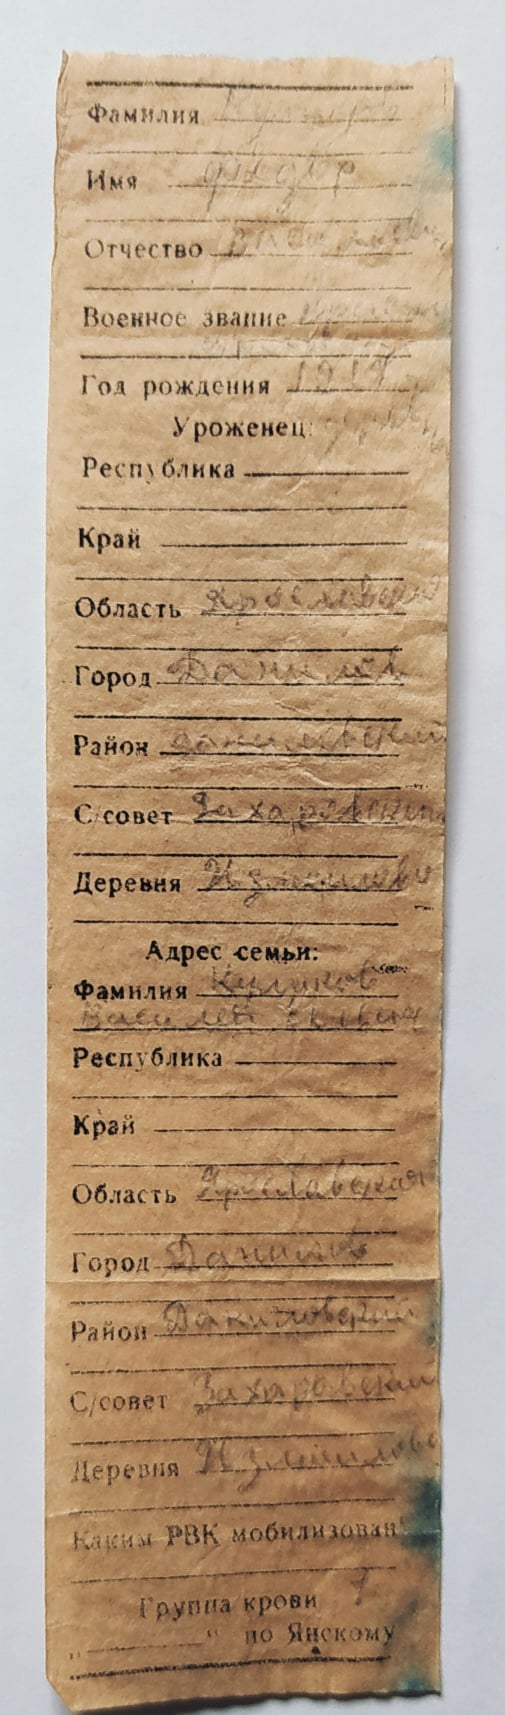 Фамилия
Имя Фёдор
Отчество
Военное звание
Год рождения
Уроженец:
Республика
Край
Область Ярославская
Город Данилов
Район даниловский
С/совет Захаровский
Деревня Измайлово
Адрес семьи:
Фамилия
Республика
Край
Область Ярославская
Город Данилов
Район Даниловский
С/совет Захаровский
Деревня Измайлово
Каким РВК мобилизован
Группа крови 1
„ “ по Янскому